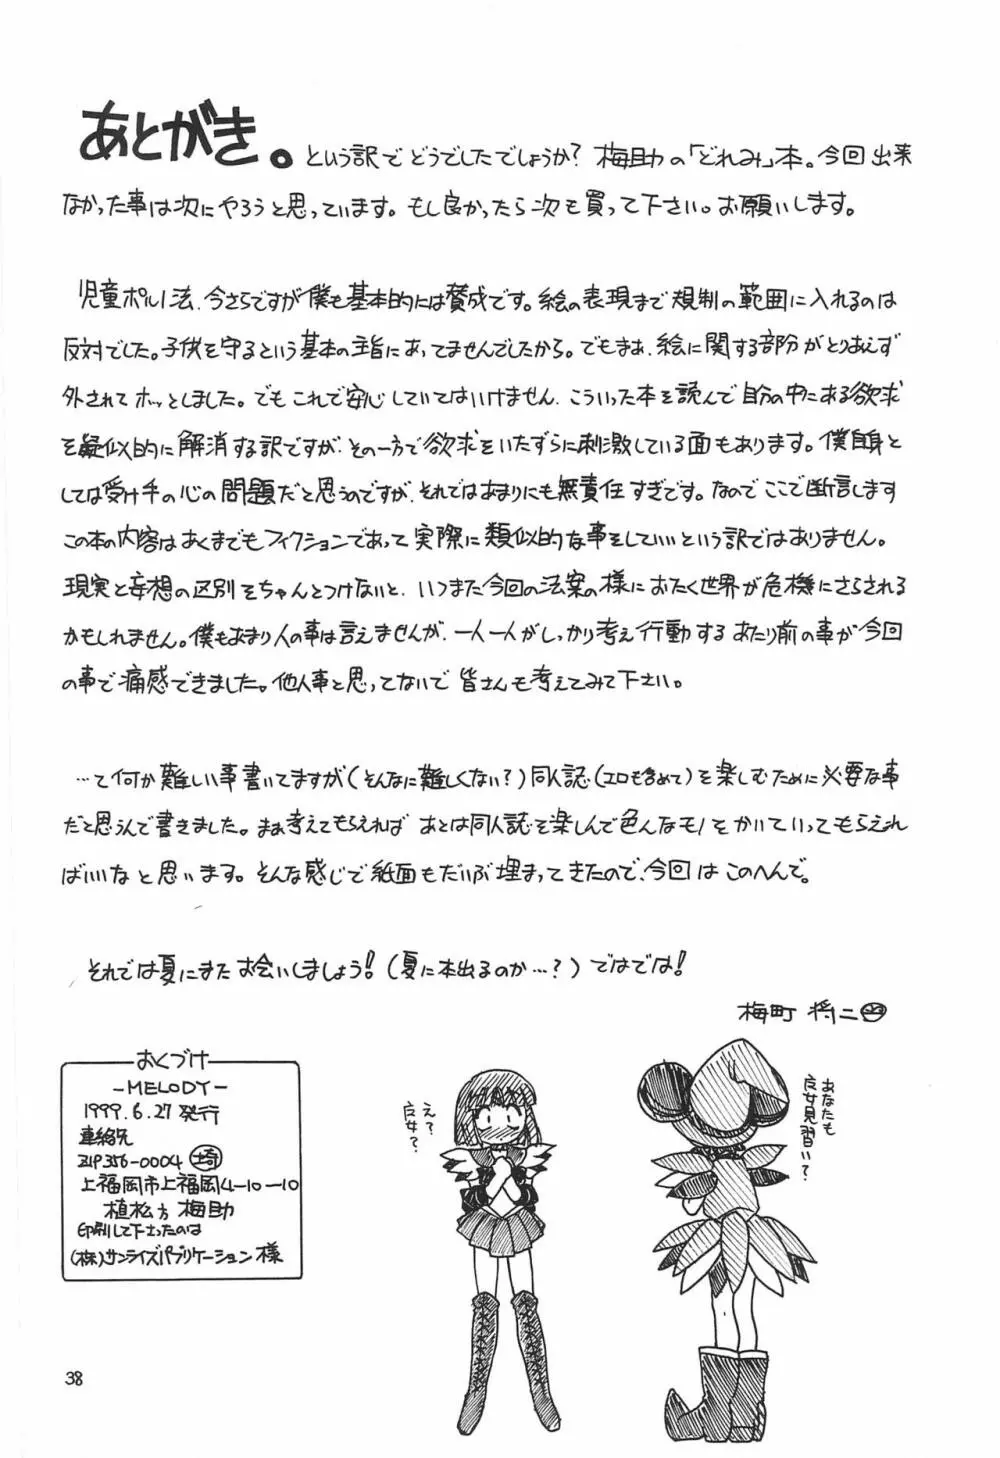 あとがき。という訳でどうでしたでしょうか？ 梅助の「どれみ」本。今回出来
なかった事は次にやろうと思っています。もし良かったら次も買って下さい。お願いします。
児童ポルノ法、今さらですが僕も基本的には賛成です。絵の表現まで規制の範囲に入れるのは
反対でした。子供を守るという基本の主旨にあってませんでしたから。でもまぁ、絵に関する部分がとりあえず
外されてホッとしました。でもこれで安心していてはいけません、こういった本を読んで自分の中にある欲求
を疑似的に解消する訳ですが、その一方で欲求をいたずらに刺激している面もあります。僕自身と
しては受け手の心の問題だと思うのですが、それではあまりにも無責任すぎです。なのでここで断言します
この本の内容はあくまでもフィクションであって実際に類似的な事をしていいという訳ではありません。
現実と妄想の区別をちゃんとつけないと、いつまた今回の法案の様におたく世界が危機にさらされる
かもしれません。僕もあまり人の事は言えませんが、一人一人がしっかり考え行動するあたり前の事が今回
の事で痛感できました。他人事と思ってないで皆さんも考えてみて下さい。
…て何か難しい事書いてますが(そんなに難しくない？)同人誌(エロも含めて)を楽しむために必要な事
だと思うんで書きました。まぁ考えてもらえればあとは同人誌を楽しんで色んなモノをかいていってもらえれ
ばいいなと思います。そんな感じで紙面もだいぶ埋まってきたので、今回はこのへんで。
それでは夏にまたお会いしましょう！(夏に本出るのか…？)ではでは！
梅町 将二
おくづけ
-MELODY-
1999.6.27 発行
連絡先
ZIP 356-0004 埼
上福岡市上福岡4-10-10
植松方 梅助
印刷して下さったのは
(株)サンライズパブリケーション様
え？
魔女？
あなたも
魔女見習い？
38